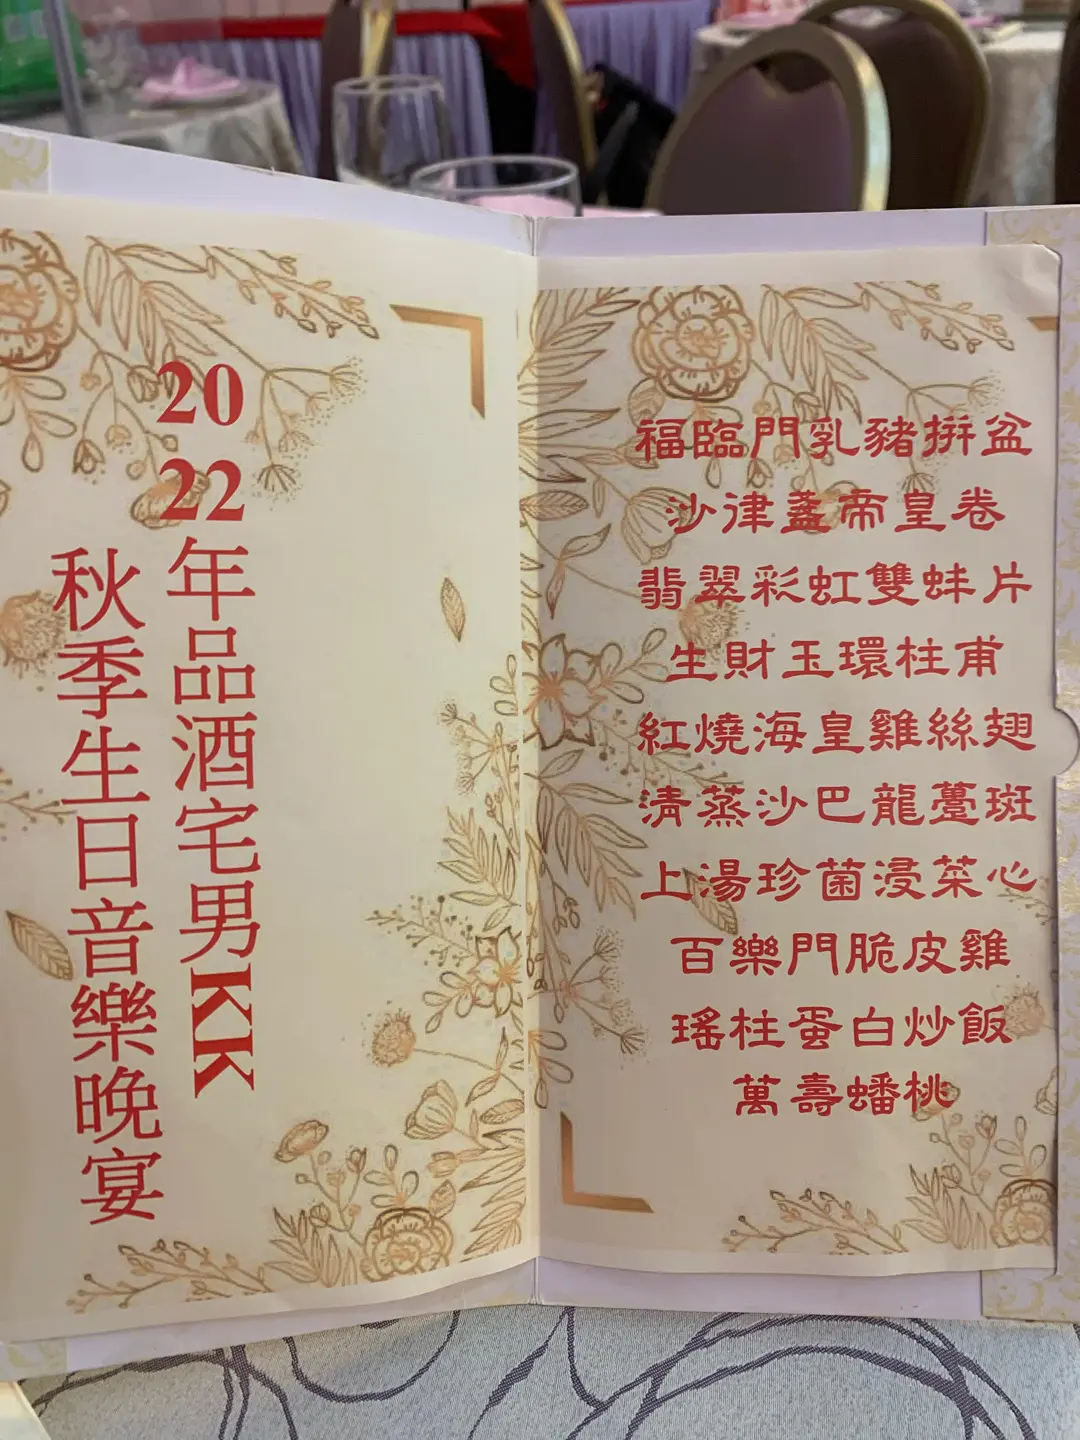 2022年品酒宅男KK
秋季生日音樂晚宴
福臨門乳豬拼盆
沙律盞帝皇卷
翡翠彩虹雙蚌片
生財玉環柱甫
紅燒海皇雞絲翅
清蒸沙巴龍躉斑
上湯珍菌浸菜心
百樂門脆皮雞
瑤柱蛋白炒飯
萬壽蟠桃